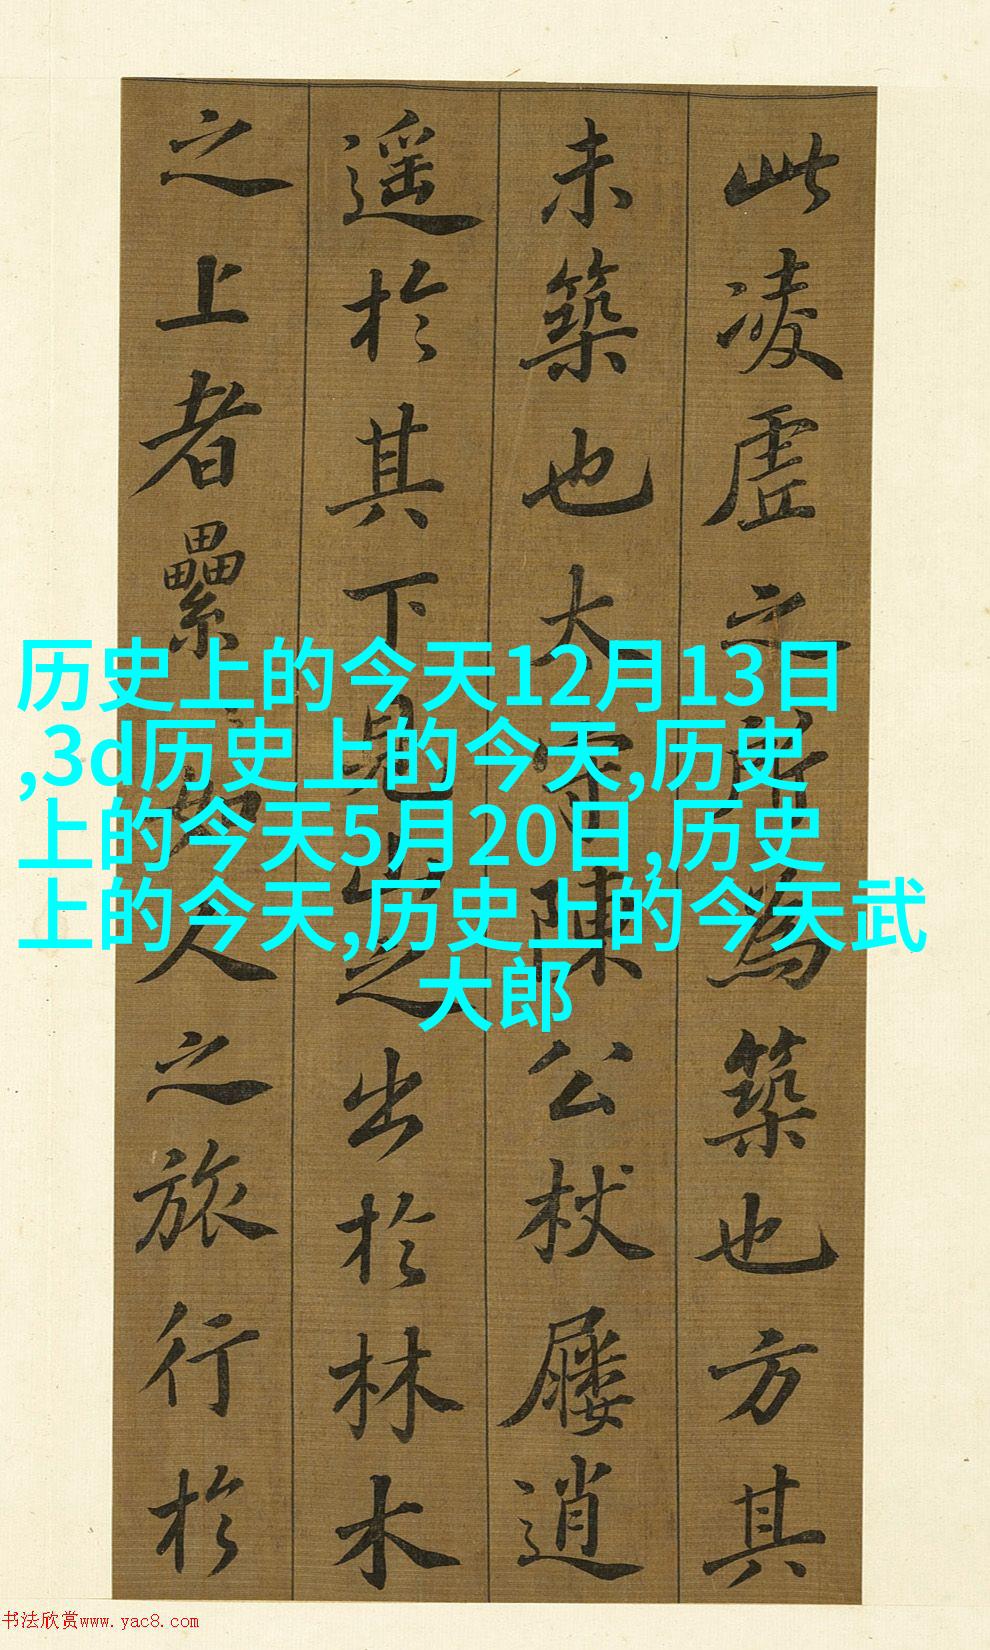 此凌虛之所為築也方其
未築也太守陳公杖屨逍
遥於其下見山之出於林木
之上者纍〻如人之旅行於
历史上的今天12月13日
,3d历史上的今天,历史
上的今天5月20日,历史
上的今天,历史上的今天武
大郎
书法欣赏www.yac8.com